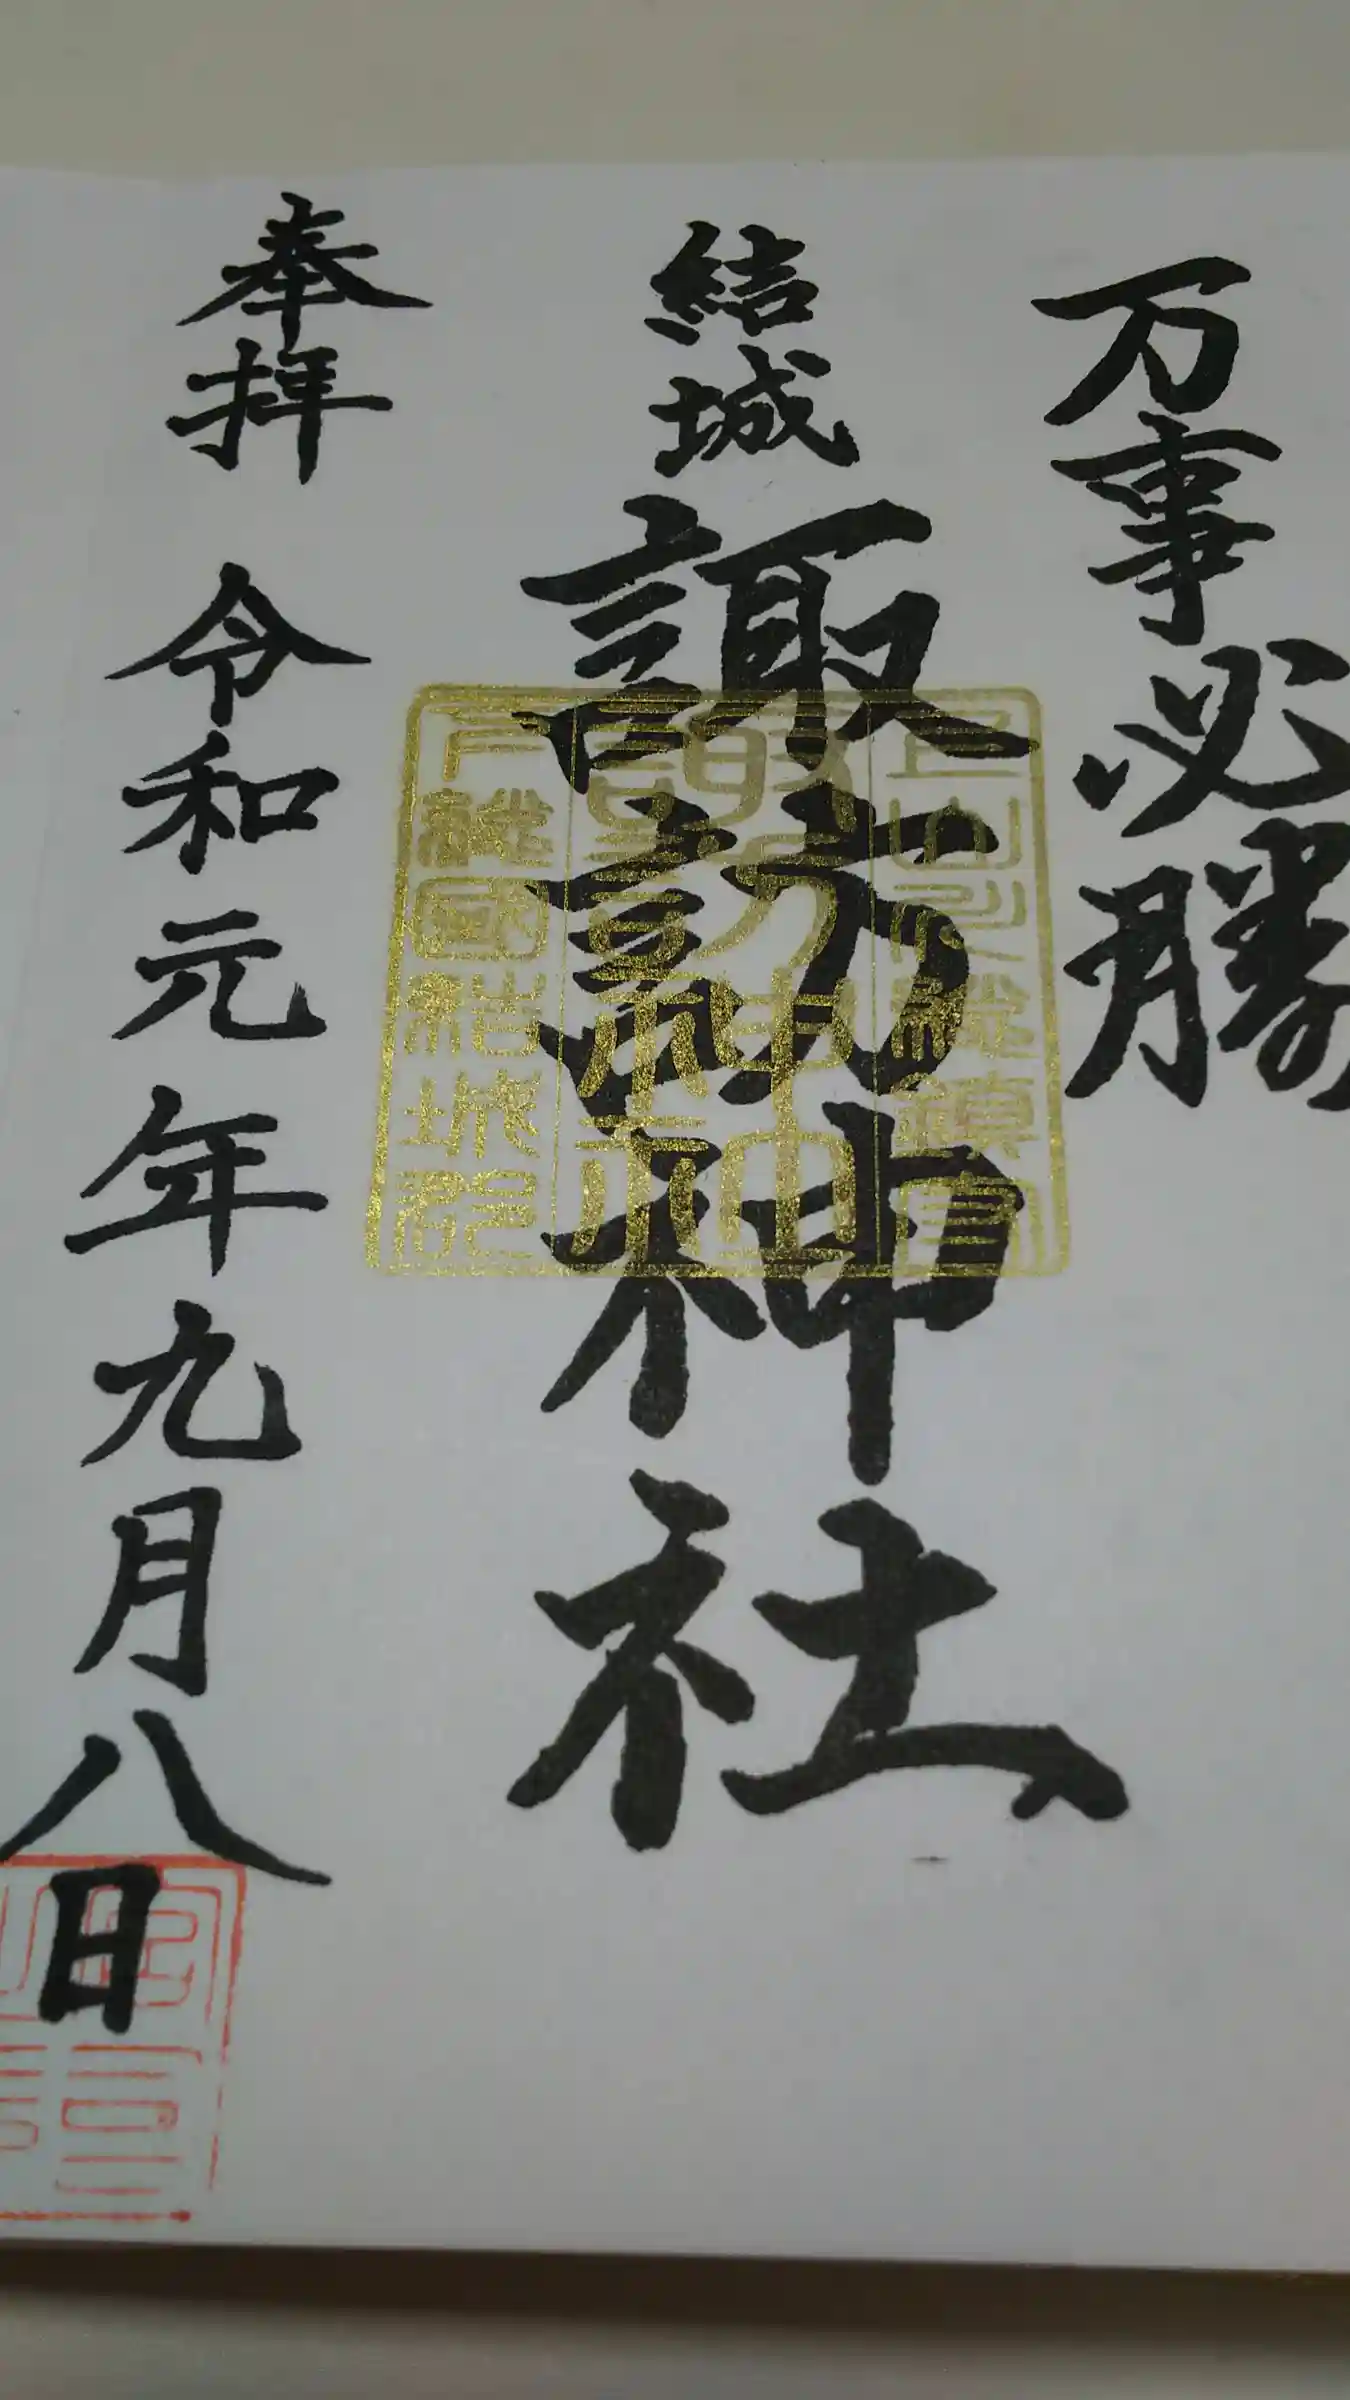 万事必勝
結城
諏訪神社
奉拝 令和元年九月八日